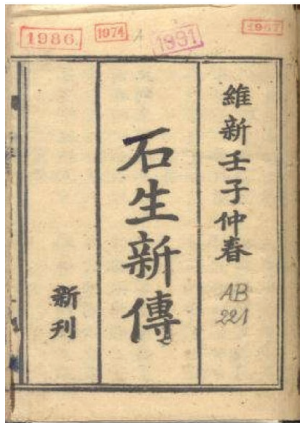 1986
1974
1991
1967
維新壬子仲春
AB
221
石生新傳
新刊